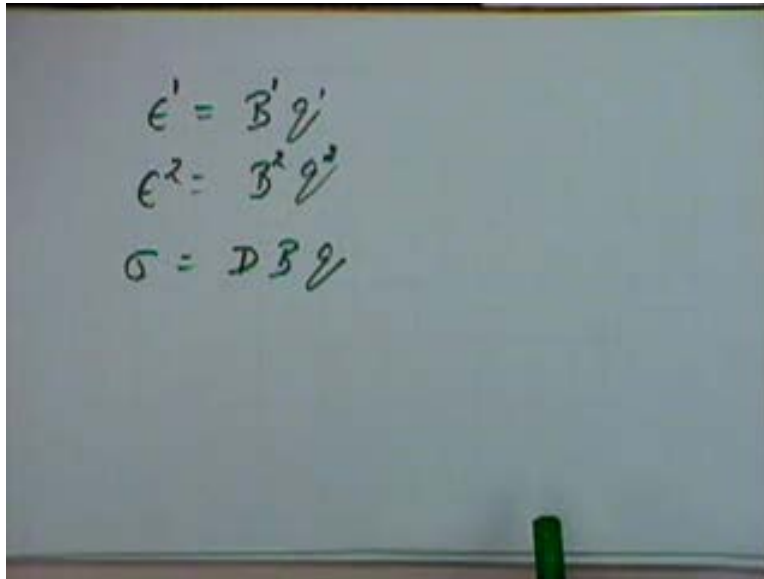 ϵ¹ = B¹ q¹
ϵ² = B² q²
σ = D B q